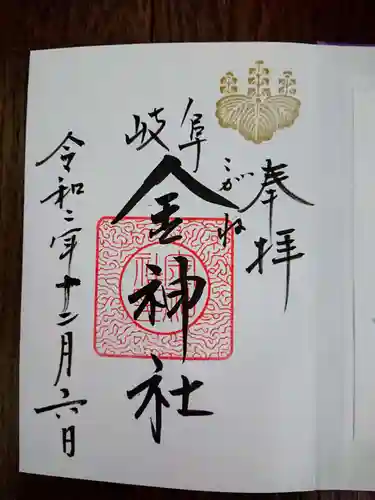 奉拝
こがね
岐阜
金神社
令和二年十二月六日